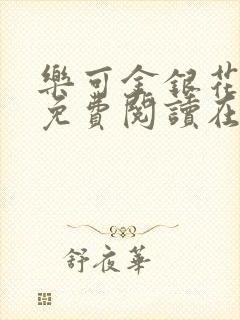 樂可金銀花
免費閱讀在
舒夜華